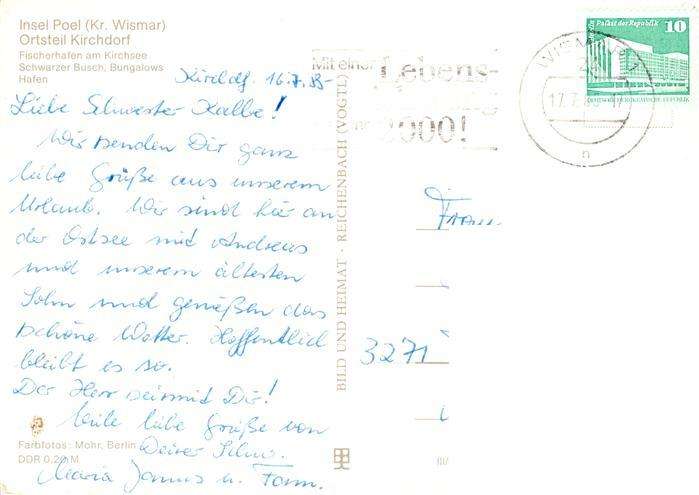 Insel Poel (Kr. Wismar)
Ortsteil Kirchdorf
Fischerhafen am Kirchsee
Schwarzer Busch, Bungalows
Hafen
Kirchdf. 16.7.85
Liebe Schwester Kalbe!
Wir senden Dir ganz
liebe Grüße aus unserem
Urlaub. Wir sind hier an
der Ostsee mit Andreas
und unserem ältesten
Sohn und genießen das
schöne Wetter. Hoffentlich
bleibt es so.
Der Herr sei mit Dir!
Viele liebe Grüße von
Deiner Schw.
Maria u. Fam.
Farbfotos: Mohr, Berlin
DDR 0,20 M
BILD UND HEIMAT · REICHENBACH (VOGTL)
Mit einer
Lebens-
5000!
WISMAR
17.7.
n
Palast der Republik
10
DEUTSCHE DEMOKRATISCHE REPUBLIK
Fam.
3271